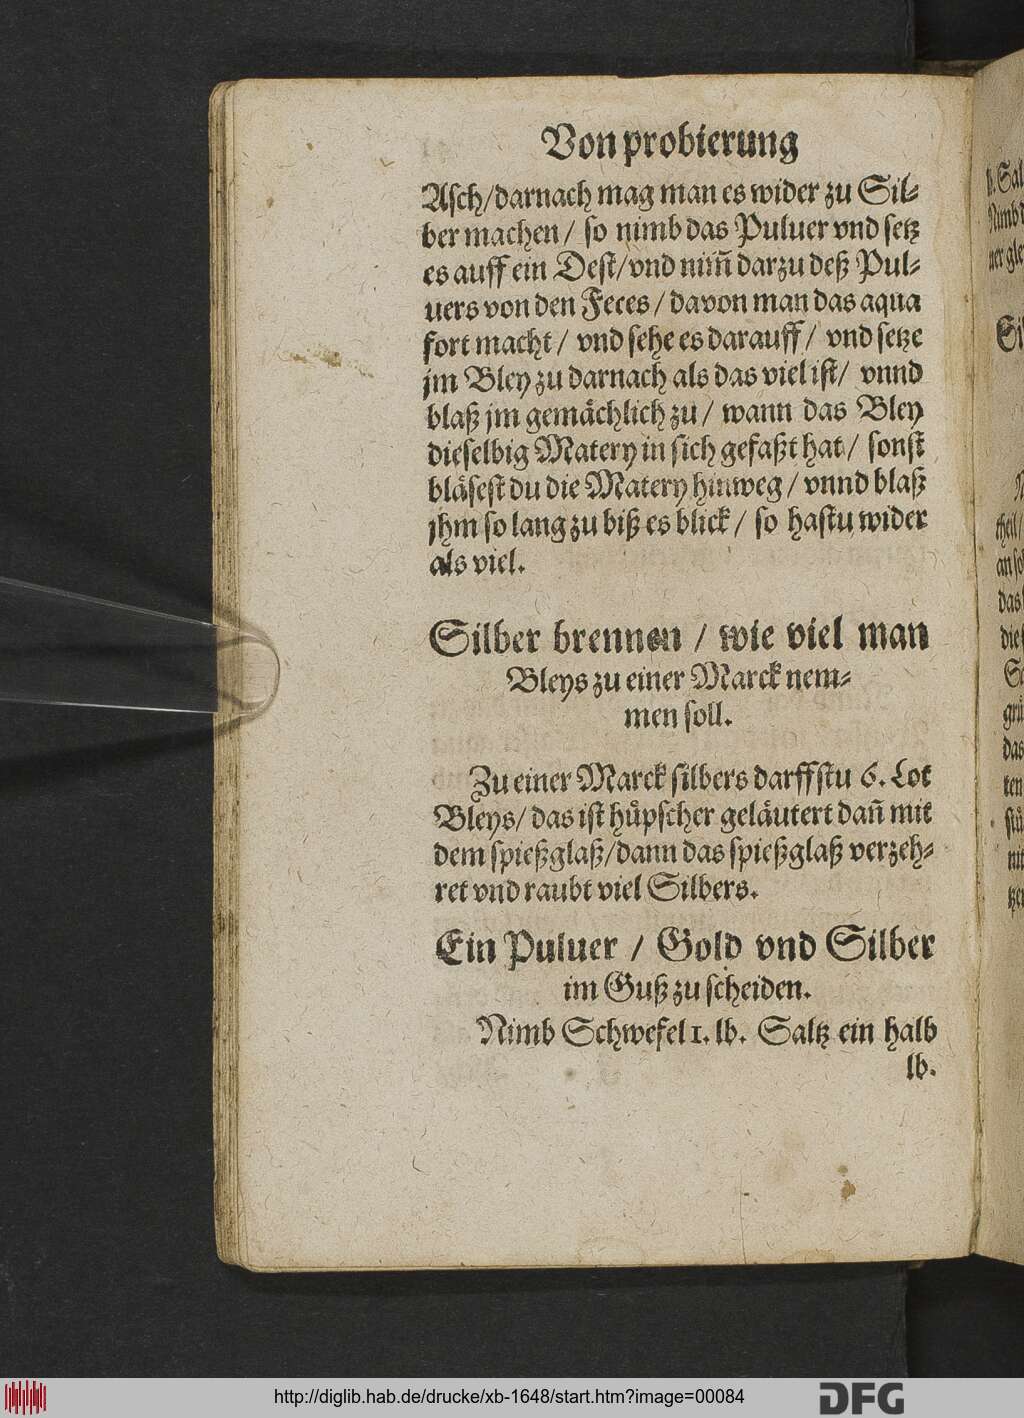 Von probierung
Asch/darnach mag man es wider zu Sil-
ber machen/ so nimb das Puluer vnd setz
es auff ein Dest/vnd nim̃ darzu deß Pul-
uers von den Feces/ davon man das aqua
fort macht/ vnd sehe es darauff/ vnd setze
jm Bley zu darnach als das viel ist/ vnnd
blaß jm gemächlich zu/ wann das Bley
dieselbig Matery in sich gefaßt hat/ sonst
bläsest du die Matery hinweg/ vnnd blaß
jhm so lang zu biß es blick/ so hastu wider
als viel.
Silber brennen / wie viel man
Bleys zu einer Marck nem-
men soll.
Zu einer Marck silbers darffstu 6. Lot
Bleys/ das ist hüpscher geläutert dañ mit
dem spießglaß/dann das spießglaß verzeh-
ret vnd raubt viel Silbers.
Ein Puluer / Gold vnd Silber
im Guß zu scheiden.
Nimb Schwefel 1. lb. Saltz ein halb
lb.
http://diglib.hab.de/drucke/xb-1648/start.htm?image=00084
DFG